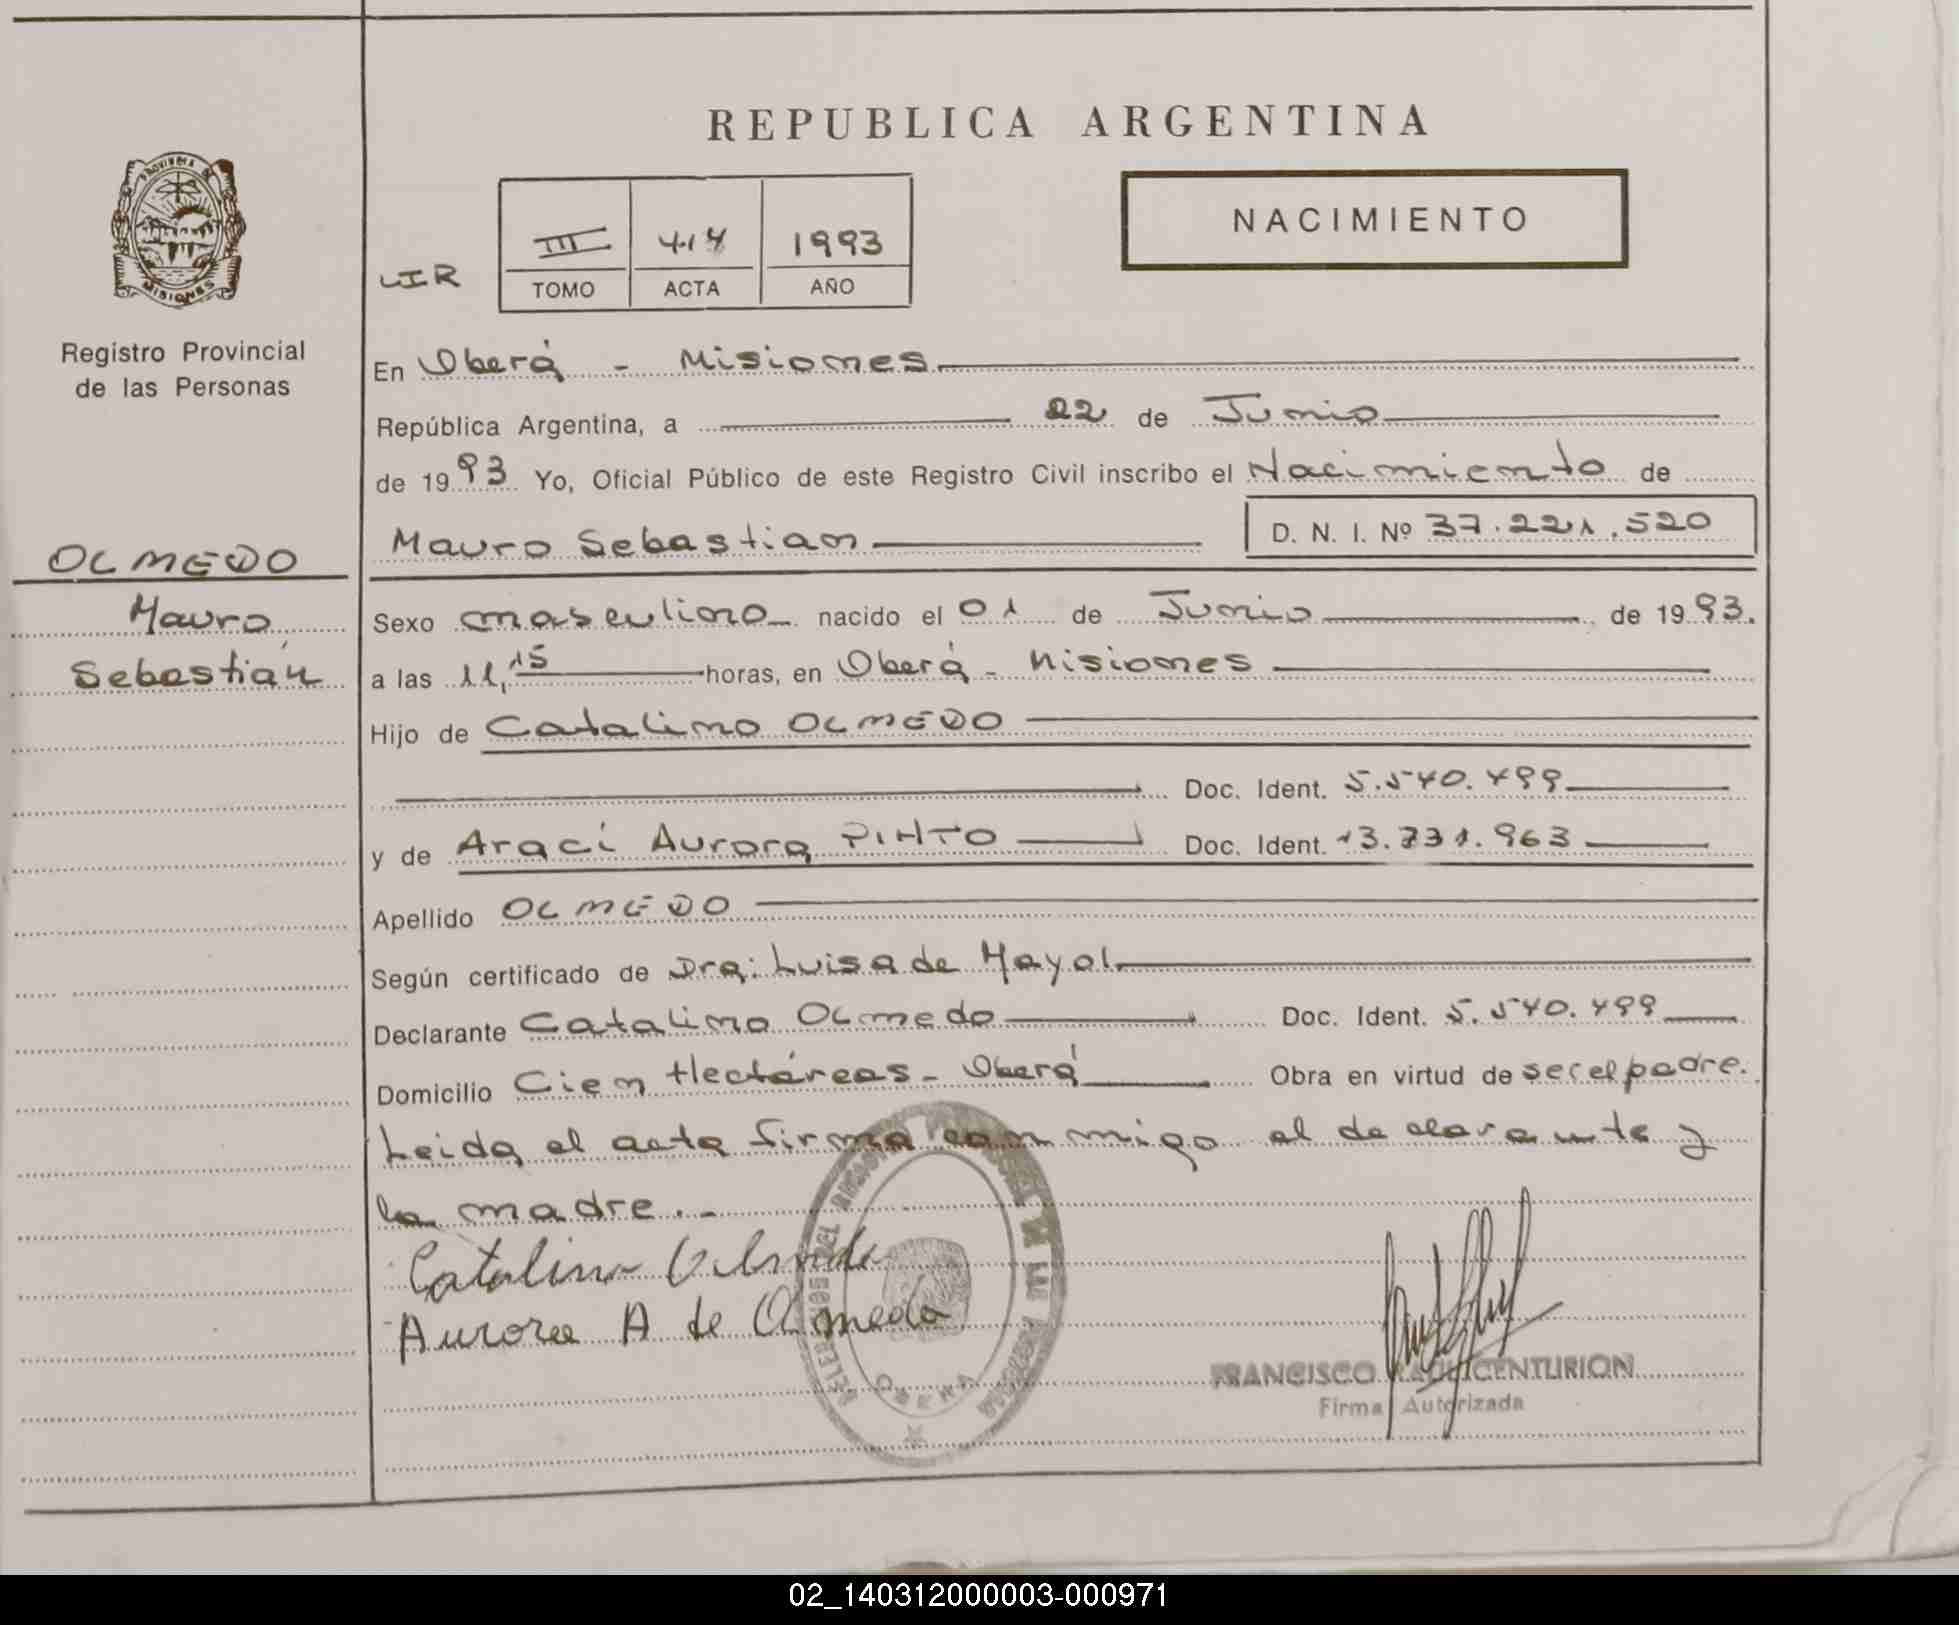 REPUBLICA ARGENTINA
PROVINCIA DE
MISIONES
Registro Provincial
de las Personas
NACIMIENTO
III 414 1993
TOMO ACTA AÑO
En Oberá - Misiones
República Argentina, a 22 de Junio
de 1993 Yo, Oficial Público de este Registro Civil inscribo el Nacimiento de
Mauro Sebastian D. N. I. Nº 37.221.520
OLMEDO
Mauro
Sebastián
Sexo masculino nacido el 01 de Junio de 1993.
a las 11,15 horas, en Oberá - Misiones
Hijo de Catalino OLMEDO
Doc. Ident. 5.540.499
y de Araci Aurora PINTO Doc. Ident. 13.731.963
Apellido OLMEDO
Según certificado de Dra: Luisa de Mayol
Declarante Catalino Olmedo Doc. Ident. 5.540.499
Domicilio Cien Hectáreas - Oberá Obra en virtud de ser el padre.
Leida el acta firma conmigo el declarante y
la madre. -
Catalino
Aurora A de Olmedo
OBERA
FRANCISCO RAUL CENTURION
Firma Autorizada
02_140312000003-000971